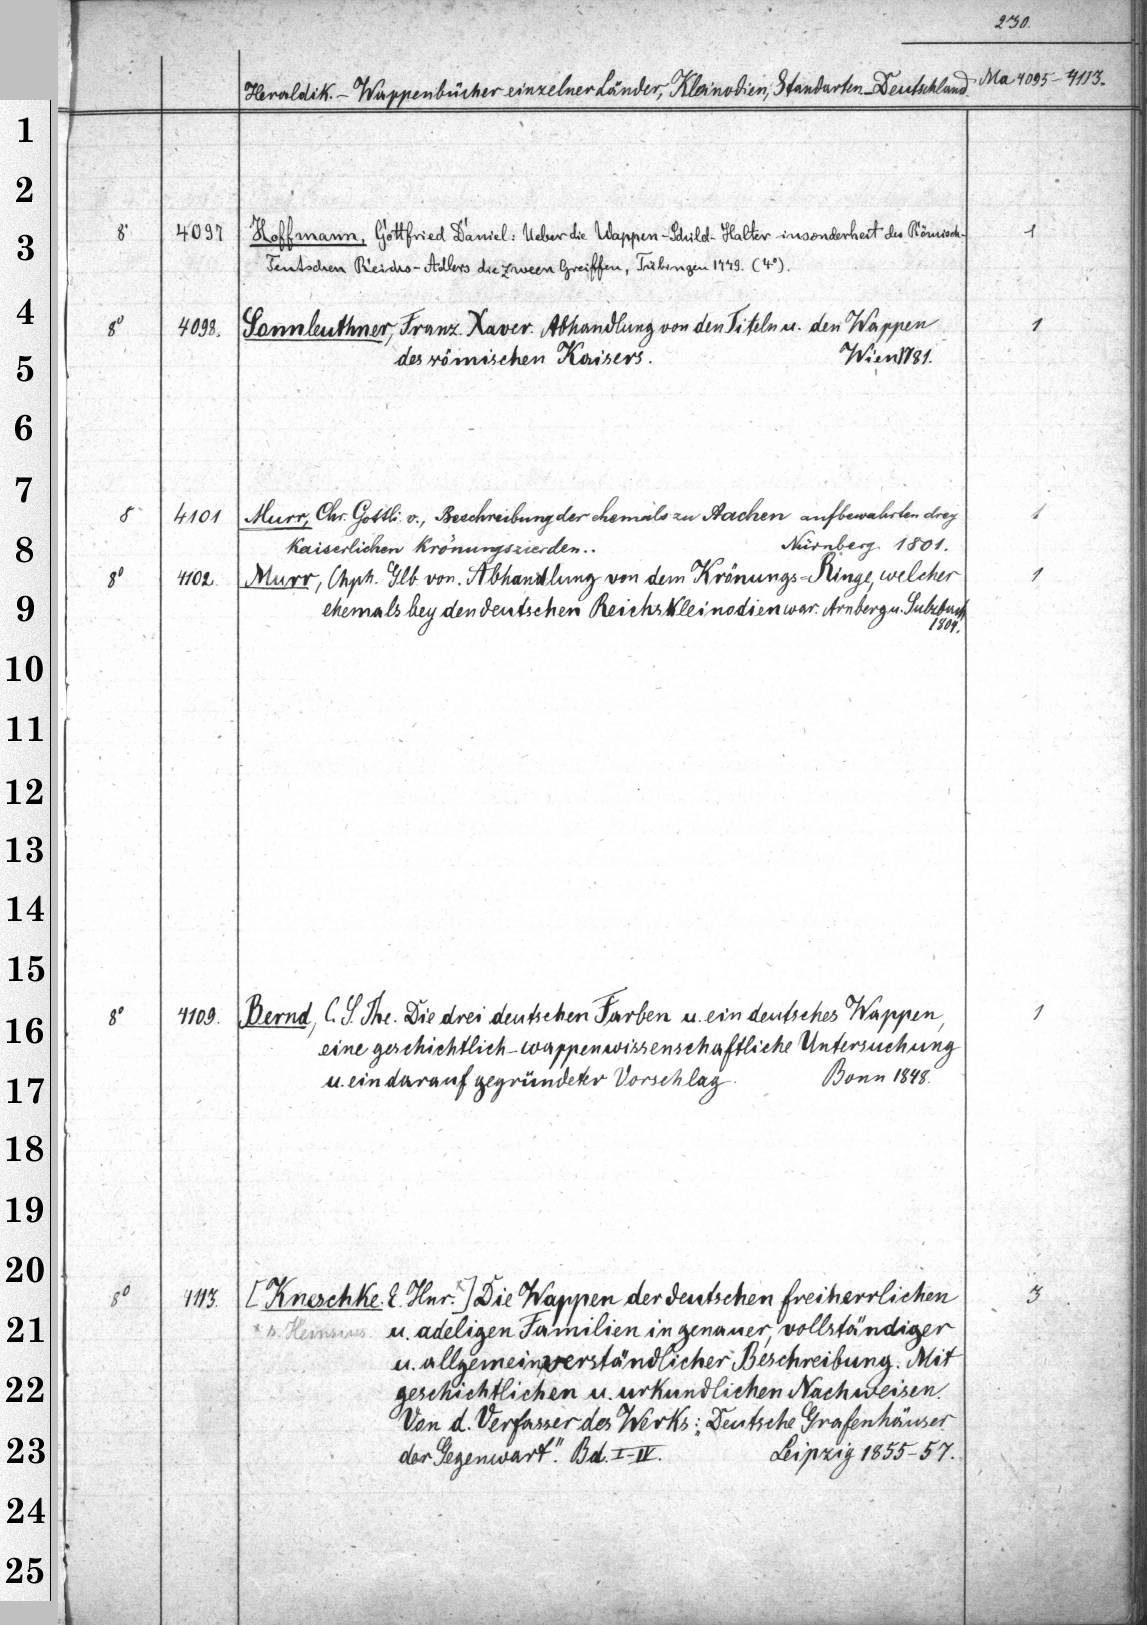 230.
Heraldik. – Wappenbücher einzelner Länder, Kleinodien, Standarten – Deutschland Ma 4095 – 4113.
1
2
3
4
5
6
7
8
9
10
11
12
13
14
15
16
17
18
19
20
21
22
23
24
25
8° 4097 Hoffmann, Gottfried Daniel: Ueber die Wappen-Schild-Halter insonderheit des Römisch- 1
Teutschen Reichs-Adlers die zween Greiffen, Tübingen 1779. (4°).
8° 4098. Sonnleuthner, Franz Xaver. Abhandlung von den Titeln u. den Wappen 1
des römischen Kaisers. Wien 1781.
8 4101 Murr, Chr. Gottli. v., Beschreibung der ehemals zu Aachen aufbewahrten drey 1
Kaiserlichen Krönungszierden.. Nürnberg. 1801.
8° 4102. Murr, Chph. Glb. von. Abhandlung von dem Krönungs-Ringe, welcher 1
ehemals bey den deutschen Reichskleinodien war. Arnberg u. Sulzbach
1804.
8° 4109. Bernd, C. S. The. Die drei deutschen Farben u. ein deutsches Wappen, 1
eine geschichtlich-wappenwissenschaftliche Untersuchung
u. ein darauf gegründeter Vorschlag. Bonn 1848.
8° 4113. [Kneschke. E. Hnr.*] Die Wappen der deutschen freiherrlichen 3
* s. Heinsius. u. adeligen Familien in genauer, vollständiger
u. allgemeinverständlicher Beschreibung. Mit
geschichtlichen u. urkundlichen Nachweisen.
Von d. Verfasser des Werks: „Deutsche Grafenhäuser
der Gegenwart". Bd. I–IV. Leipzig 1855–57.